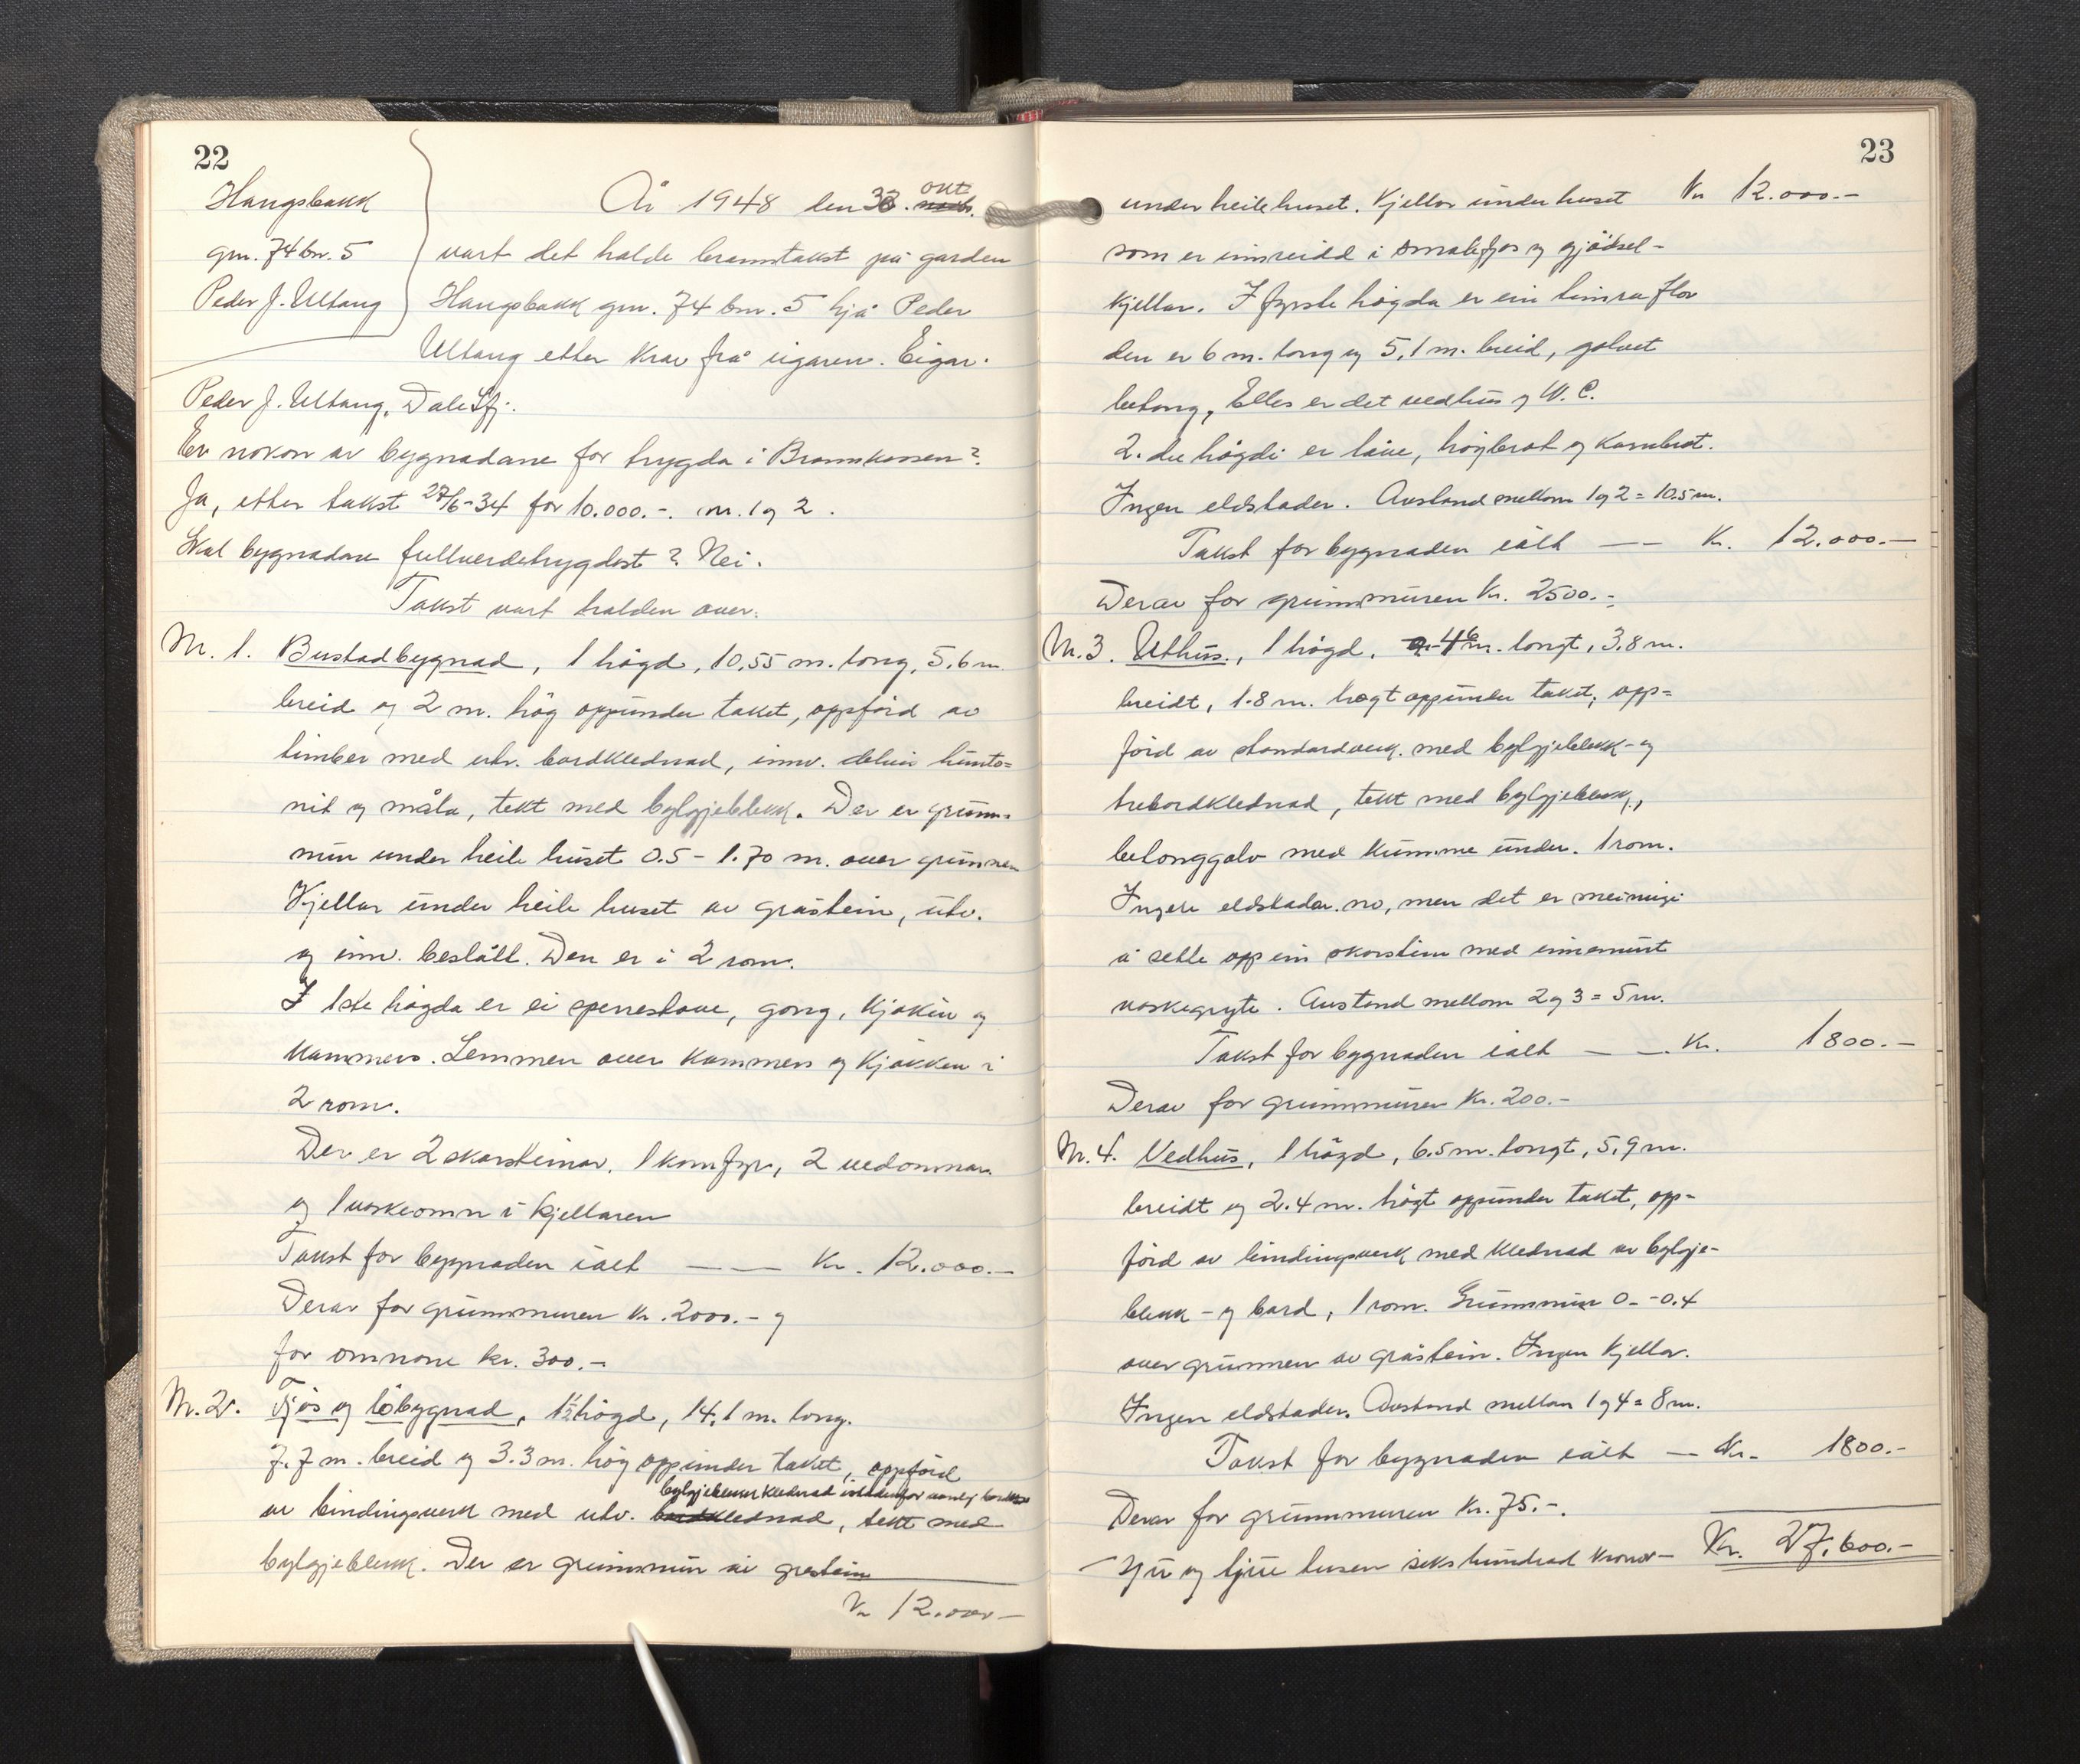 22
Haugsbakk
gnr. 74 bnr. 5
Peder J. Ullang
År 1948 den 30. okt.
vart det halde branntakst på garden
Haugsbakk gnr. 74 bnr. 5 hjå Peder
Ullang etter krav frå eigaren. Eigar:
Peder J. Ullang, Dale Sfj.
Er nokon av bygnadane for trygda i Brannkassen?
Ja, etter takst 27/6-34 for 10.000.-. nr. 1 og 2.
Skal bygnadane fullverdetrygdast? Nei.
Takst vart halden over:
Nr. 1. Bustadbygnad, 1 högd, 10,55 m. long, 5,6 m.
breid og 2 m. hög oppunder taket, oppförd av
timber med utv. bordklednad, innv. delvis hunto=
nit og måla, tekt med bylgjeblekk. Der er grunn=
mur under heile huset 0.5 - 1.70 m. over grunnen
Kjellar under heile huset av gråstein, utv.
og innv. beslått. Den er i 2 rom.
I 1ste högda er ei sperrestove, gong, kjøken og
kammers. Lemmen over kammers og kjøkken i
2 rom.
Der er 2 skorsteinar, 1 komfyr, 2 vedomnar
og 1 vaskeomn i kjellaren
Takst for bygnaden ialt — — Kr. 12.000.-
Derav for grunnmuren kr. 2000.- og
for omnane kr. 300.-
Nr. 2. Fjös og löbygnad, 1½ högd, 14,1 m. long.
7.7 m. breid og 3.3 m. hög oppunder taket, oppförd
bylgjeblekk klednad istadenfor vanleg
av bindingsverk med utv. bordklednad, tekt med
bylgjeblekk. Der er grunnmur av grastein
Kr 12.000-
23
under heile huset. Kjellar under huset Kr 12.000.-
som er innreidd i smalefjos og gjödsel-
kjellar. I fyrste högda er ein timra flor
den er 6 m. long og 5,1 m. breid, golvet
betong, Elles er det vedhus og W.C.
2. dre högdi er låve, höybrot og kornbrot.
Ingen eldstader. Avstand mellom 1 og 2 = 10.5 m.
Takst for bygnaden ialt — — Kr. 12.000.-
Derav for grunnmuren Kr. 2500.-
Nr. 3. Uthus, 1 högd, 4 m. longt, 3,8 m.
breidt, 1.8 m. høgt oppunder taket, opp=
förd av standardverk. med bylgjeblekk- og
trebordklednad, tekt med bylgjeblekk,
betonggolv med kumme under. 1 rom.
Ingen eldstader no, men det er meiningi
å sette opp ein skorstein med innemurt
vaskegryte. Avstand mellom 2 og 3 = 5 m.
Takst for bygnaden ialt — — Kr. 1800.-
Derav for grunnmuren Kr. 200.-
Nr. 4. Vedhus, 1 högd, 6.5 m. longt, 5,9 m.
breidt og 2.4 m. högt oppunder taket, opp-
förd av bindingsverk med klednad av bylgje-
blekk - og bord, 1 rom. Grunnmur 0.-0.4
over grunnen av gråstein. Ingen kjellar.
Ingen eldstader. Avstand mellan 1 og 4 = 8 m.
Takst for bygnaden ialt — Kr. 1800.-
Derav for grunnmuren Kr. 75.-.
sju og tjue tusen sekshundrad kronor- Kr. 27.600.-